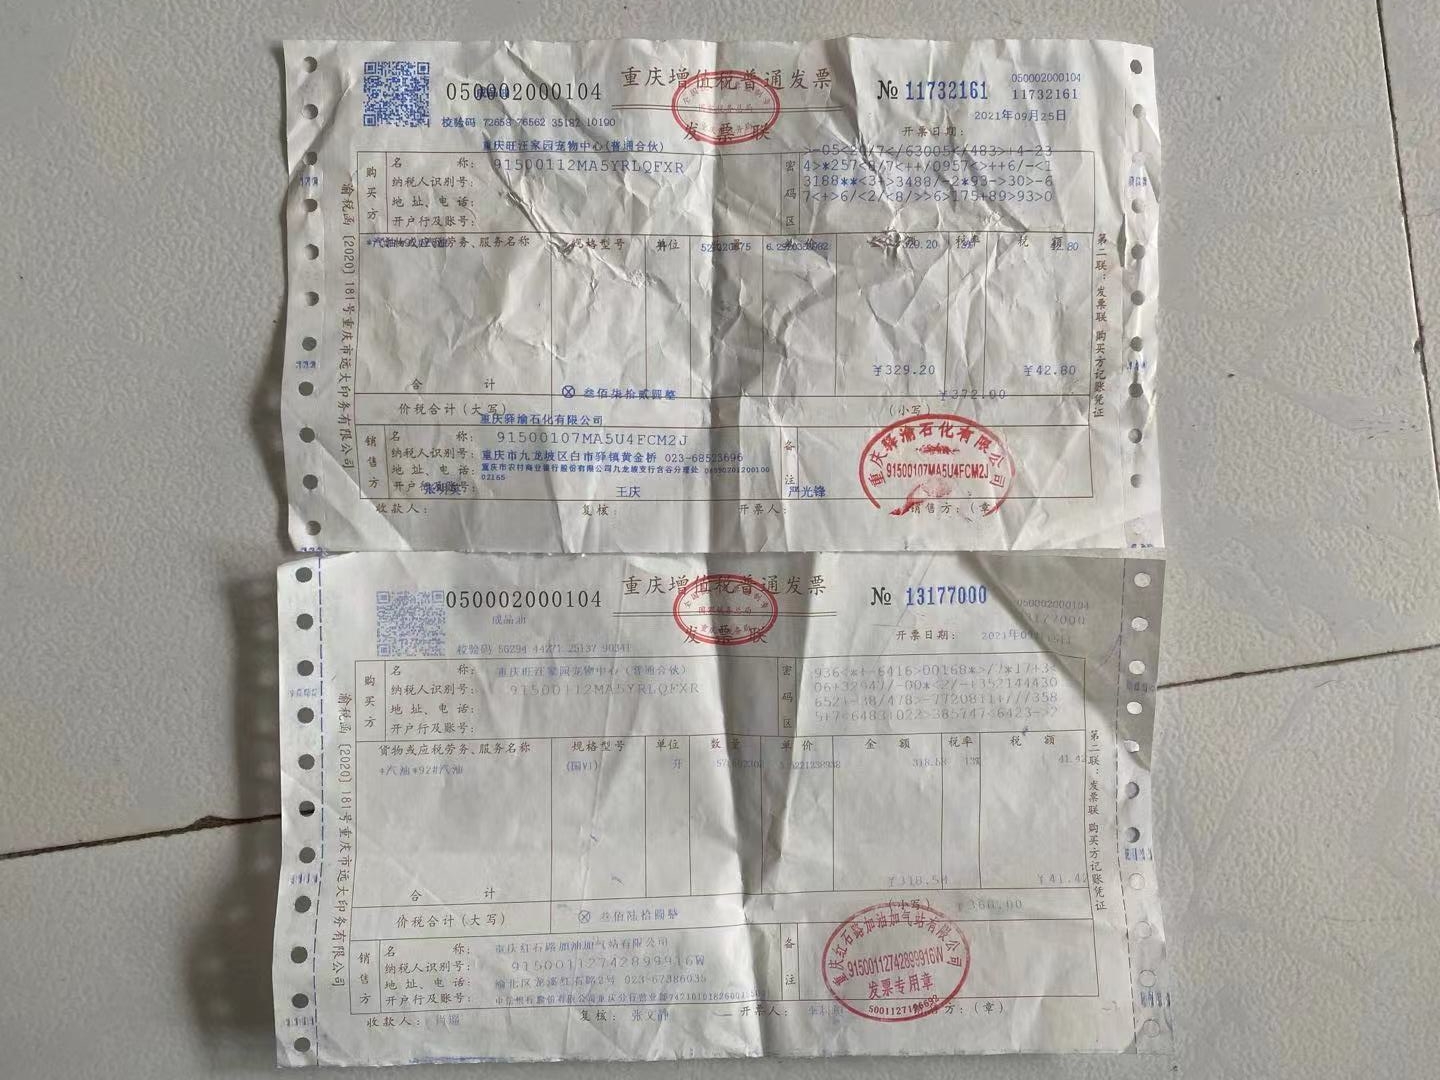 重庆增值税普通发票
发票联
050002000104
№ 11732161
050002000104
11732161
校验码 72658 76562 35182 10190
开票日期:
2021年09月25日
购买方
名 称:
重庆旺汪家园宠物中心(普通合伙)
纳税人识别号:
91500112MA5YRLQFXR
地址、电话:
开户行及账号:
密码区
>-05<20/7</63005</483>+4-23
3188**<3+>3488/-2*93->30>-6
7<+>6/<2/<8/>>6>175+89>93>0
货物或应税劳务、服务名称
规格型号
单位
数量
单价
金额
税率
税额
329.20
42.80
合 计
¥329.20
¥42.80
价税合计(大写)
叁佰柒拾贰圆整
(小写)
¥372.00
销售方
名 称:
重庆驿渝石化有限公司
纳税人识别号:
91500107MA5U4FCM2J
地址、电话:
重庆市九龙坡区白市驿镇黄金桥 023-68523696
开户行及账号:
重庆市农村商业银行股份有限公司九龙坡支行含谷分理处
02165
备注
重庆驿渝石化有限公司
91500107MA5U4FCM2J
收款人:
复核:
王庆
开票人:
严光锋
销售方:(章)
渝税函[2020]181号重庆市远大印务有限公司
第二联:发票联 购买方记账凭证
重庆增值税普通发票
发票联
050002000104
成品油
№ 13177000
050002000104
13177000
校验码 56294 44271 25137 90341
开票日期:
购买方
名 称: 重庆旺汪家园宠物中心(普通合伙)
纳税人识别号: 91500112MA5YRLQFXR
地址、电话:
开户行及账号:
密码区
货物或应税劳务、服务名称
规格型号
单位
数量
单价
金额
税率
税额
*汽油*92#汽油
(国VI)
升
13%
合 计
¥318.58
¥41.42
价税合计(大写)
叁佰陆拾圆整
(小写) ¥360.00
销售方
名 称: 重庆红石路加油加气站有限公司
纳税人识别号: 91500112742899916W
地址、电话: 渝北区龙溪红石路2号 023-67386035
开户行及账号:
备注
重庆红石路加油加气站有限公司
91500112742899916W
发票专用章
收款人:
复核: 张文静
开票人:
销售方:(章)
渝税函[2020]181号重庆市远大印务有限公司
第二联:发票联 购买方记账凭证